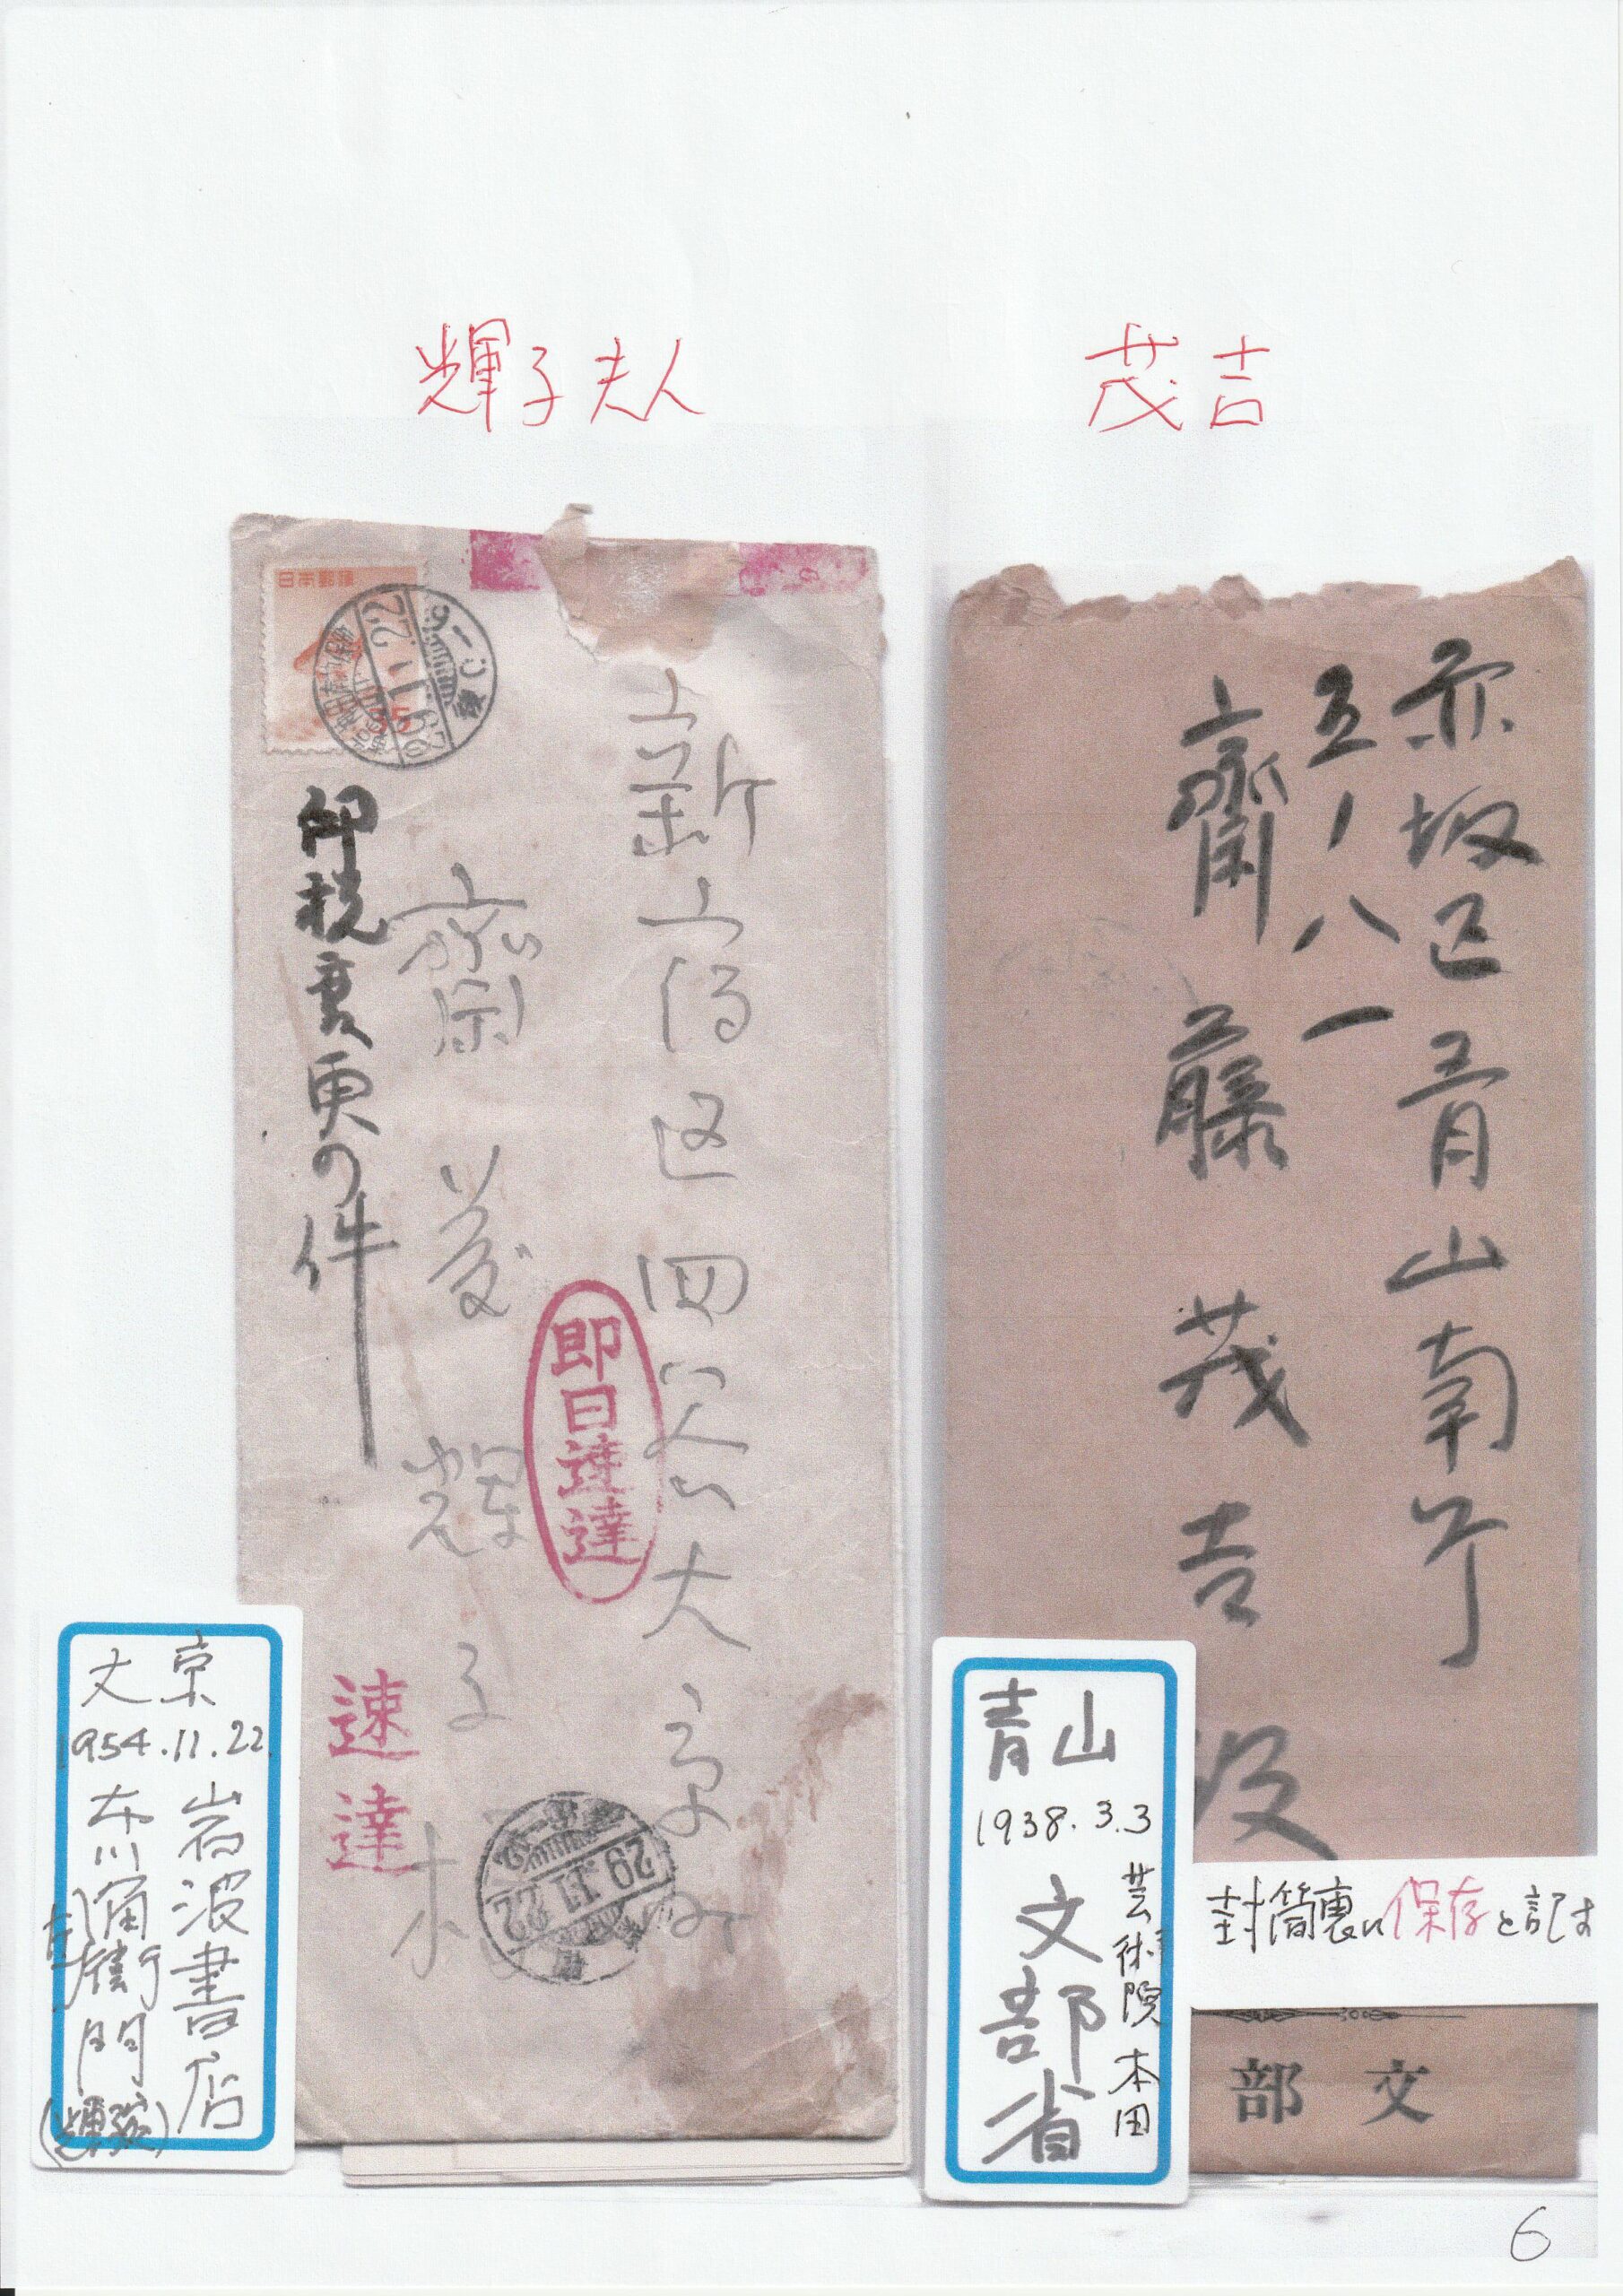 輝子夫人
茂吉
日本郵便
29.11.22
新宿区四谷大京町
齋藤輝子様
印税変更の件
即日速達
速達
29.11.22
文京
1954.11.22.
岩波書店
布川
衛門
赤坂区青山南町
五ノ八一
齋藤茂吉
殿
青山
1938.3.3
芸術院 本田
文部省
封筒裏に保存と記す
文部
6